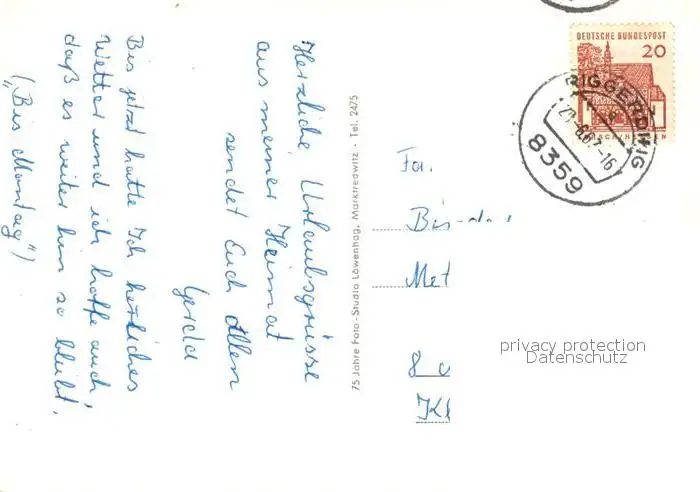 Herzliche Urlaubsgrüsse
aus meiner Heimat
sendet Euch Allen
Gerda
Bis jetzt hatte ich herrliches
Wetter und ich hoffe auch,
daß es weiter hin so bleibt.
("Bis Montag")
75 Jahre Foto-Studio Löwenhag, Marktredwitz - Tel. 2475
DEUTSCHE BUNDESPOST
20
RIGGERDING
8359
Fa.
Met
8
Kl
privacy protection
Datenschutz